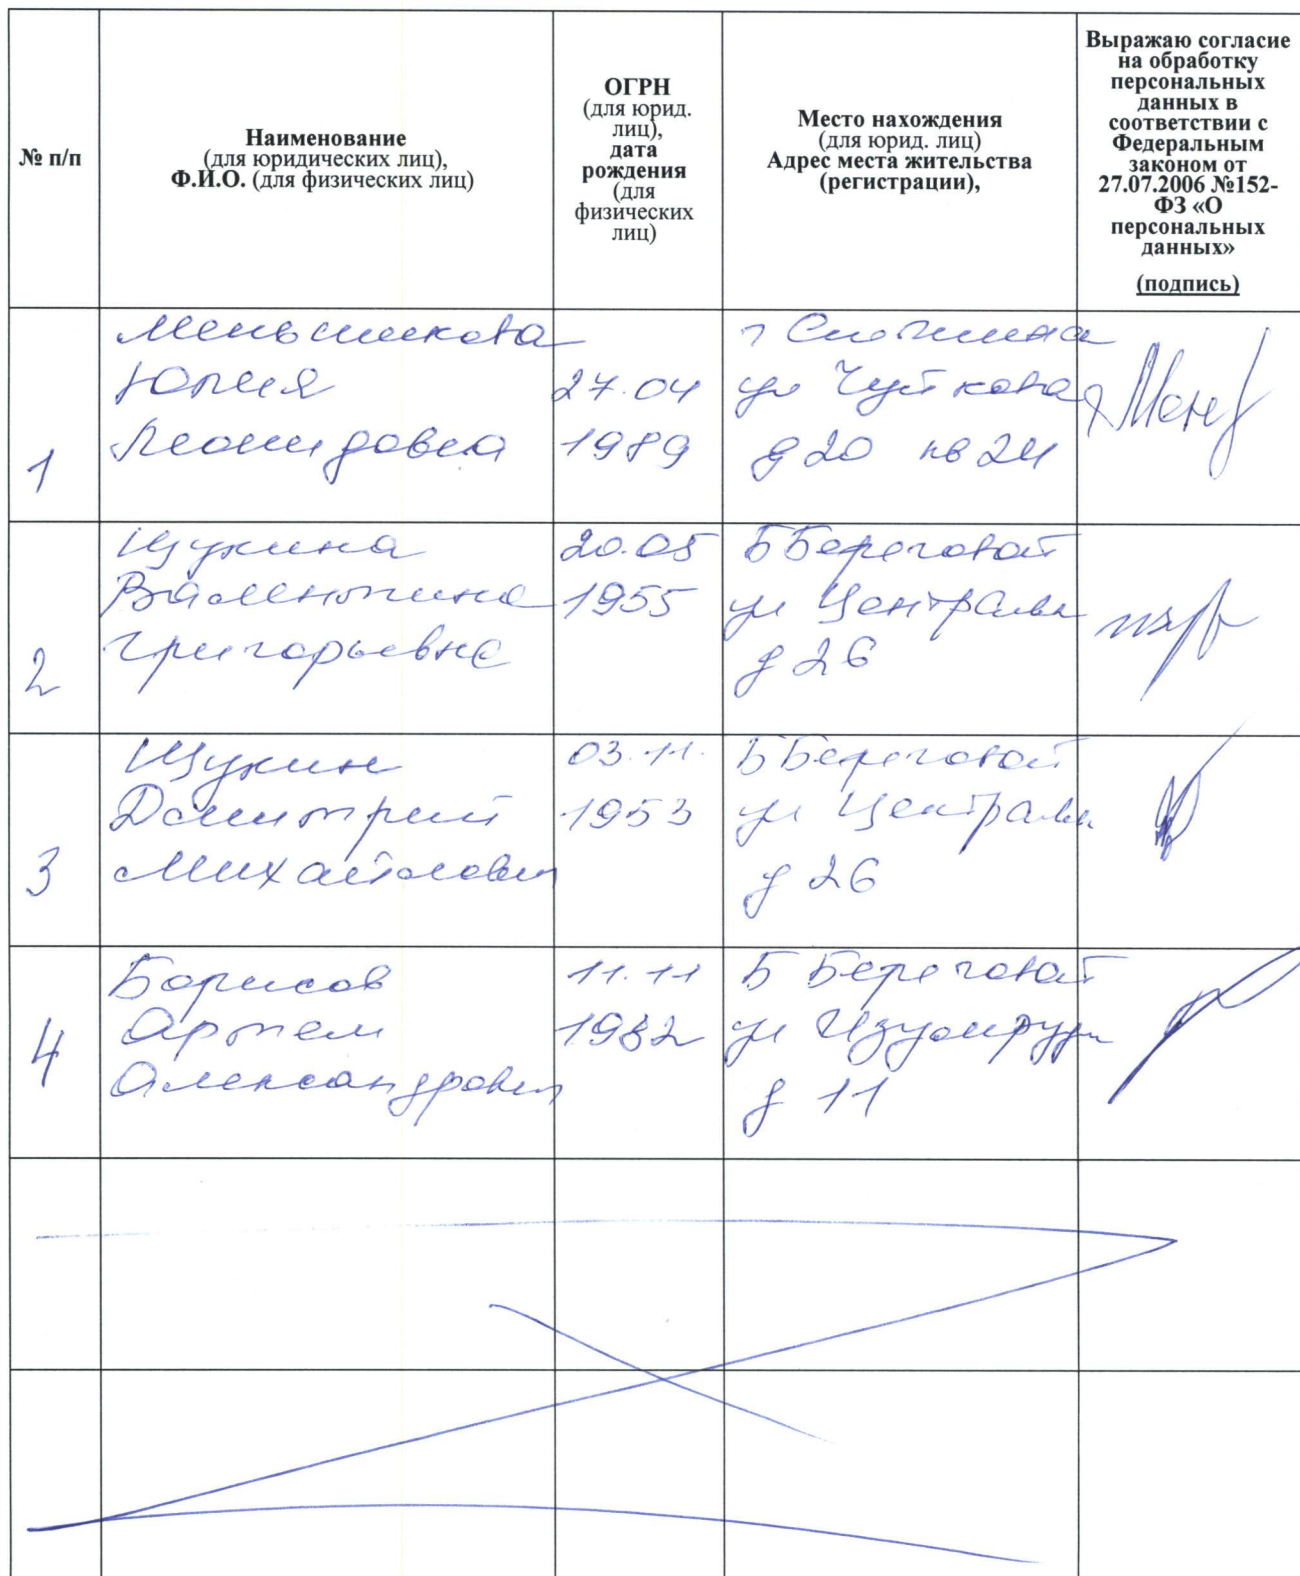 № п/п
Наименование
(для юридических лиц),
Ф.И.О. (для физических лиц)
ОГРН
(для юрид.
лиц),
дата
рождения
(для
физических
лиц)
Место нахождения
(для юрид. лиц)
Адрес места жительства
(регистрации),
Выражаю согласие
на обработку
персональных
данных в
соответствии с
Федеральным
законом от
27.07.2006 №152-
ФЗ «О
персональных
данных»
(подпись)
1
Меньшикова
Юлия
Леонидовна
27.04
1989
г
ул Чуйкова
д 20 кв 24
2
Щукина
Валентина
Григорьевна
20.05
1955
Б Береговой
ул Централь
д 26
3
Щукин
Дмитрий
Михайлович
03.11.
1953
Б Береговой
ул Централь
д 26
4
Борисов
Артем
Александрович
11.11
1982
Б Береговой
ул Изумруд
д 11